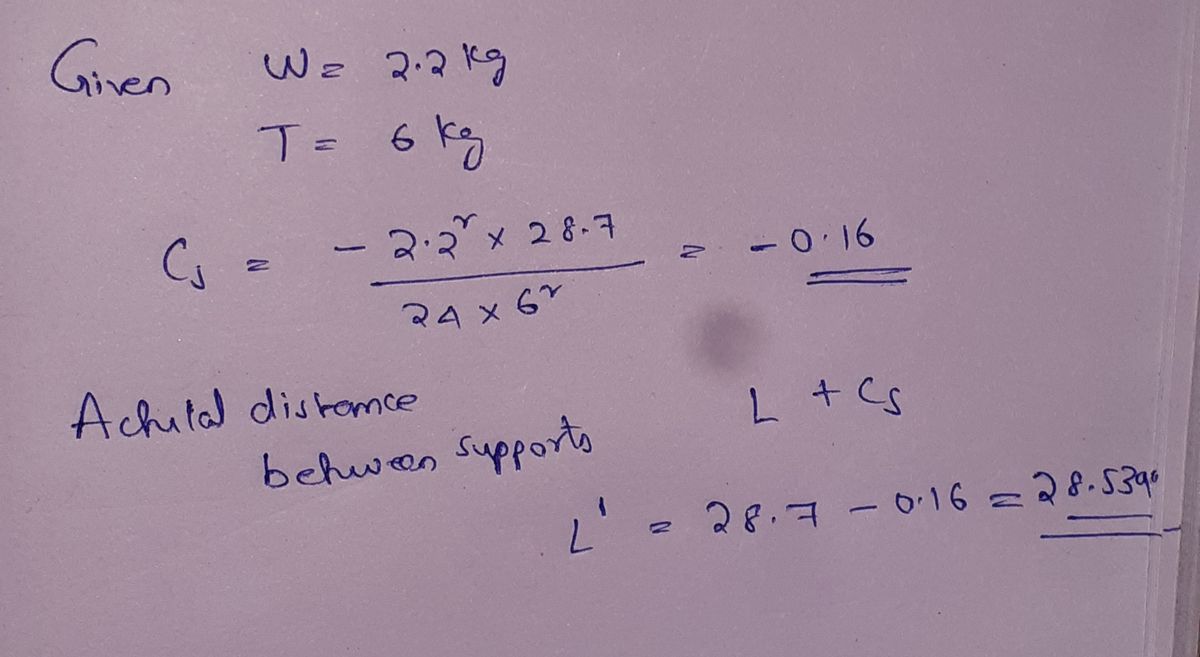 Given W = 2.2 kg
T = 6 kg
Cs = - 2.2² × 28.7 / 24 × 6² = - 0.16
Achutal distomce
between supports
L + Cs
L' = 28.7 - 0.16 = 28.5396